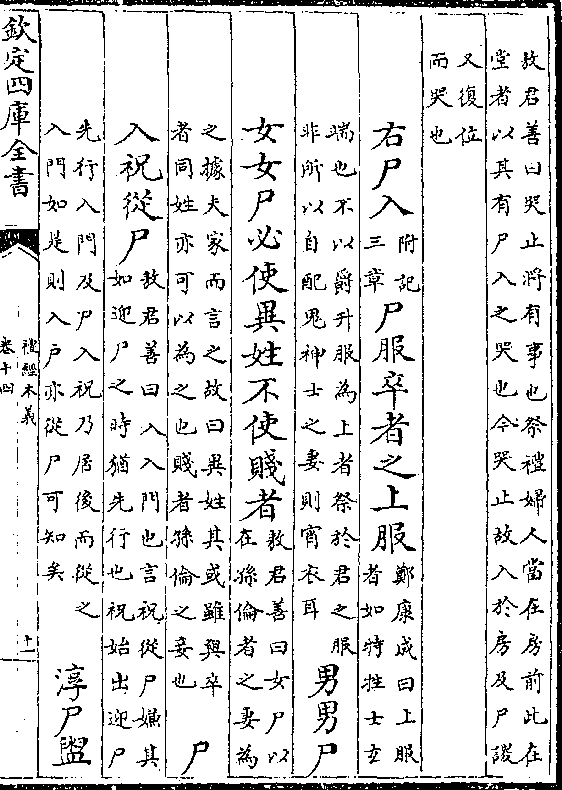 敖君善曰哭止將有事也祭禮婦人當在房前此在
堂者以其有尸入之哭也今哭止故入於房及尸謖
又復位
而哭也
右尸入附記三章尸服卒者之上服鄭康成曰上服者如特牲士玄
端也不以爵升服為上者祭於君之服非所以自配鬼神士之妻則宵衣耳男男尸
女女尸必使異姓不使賤者敖君善曰女尸以在孫倫者之妻為
之據夫家而言之故曰異姓其或雖與卒者同姓亦可以為之也賤者孫倫之妾也尸
入祝從尸敖君善曰入入門也言祝從尸嫌其如迎尸之時猶先行也祝始出迎尸
先行入門及尸入祝乃居後而從之入門如是則入戶亦從尸可知矣淳尸盥
欽定四庫全書
禮經本義
卷十四
十一